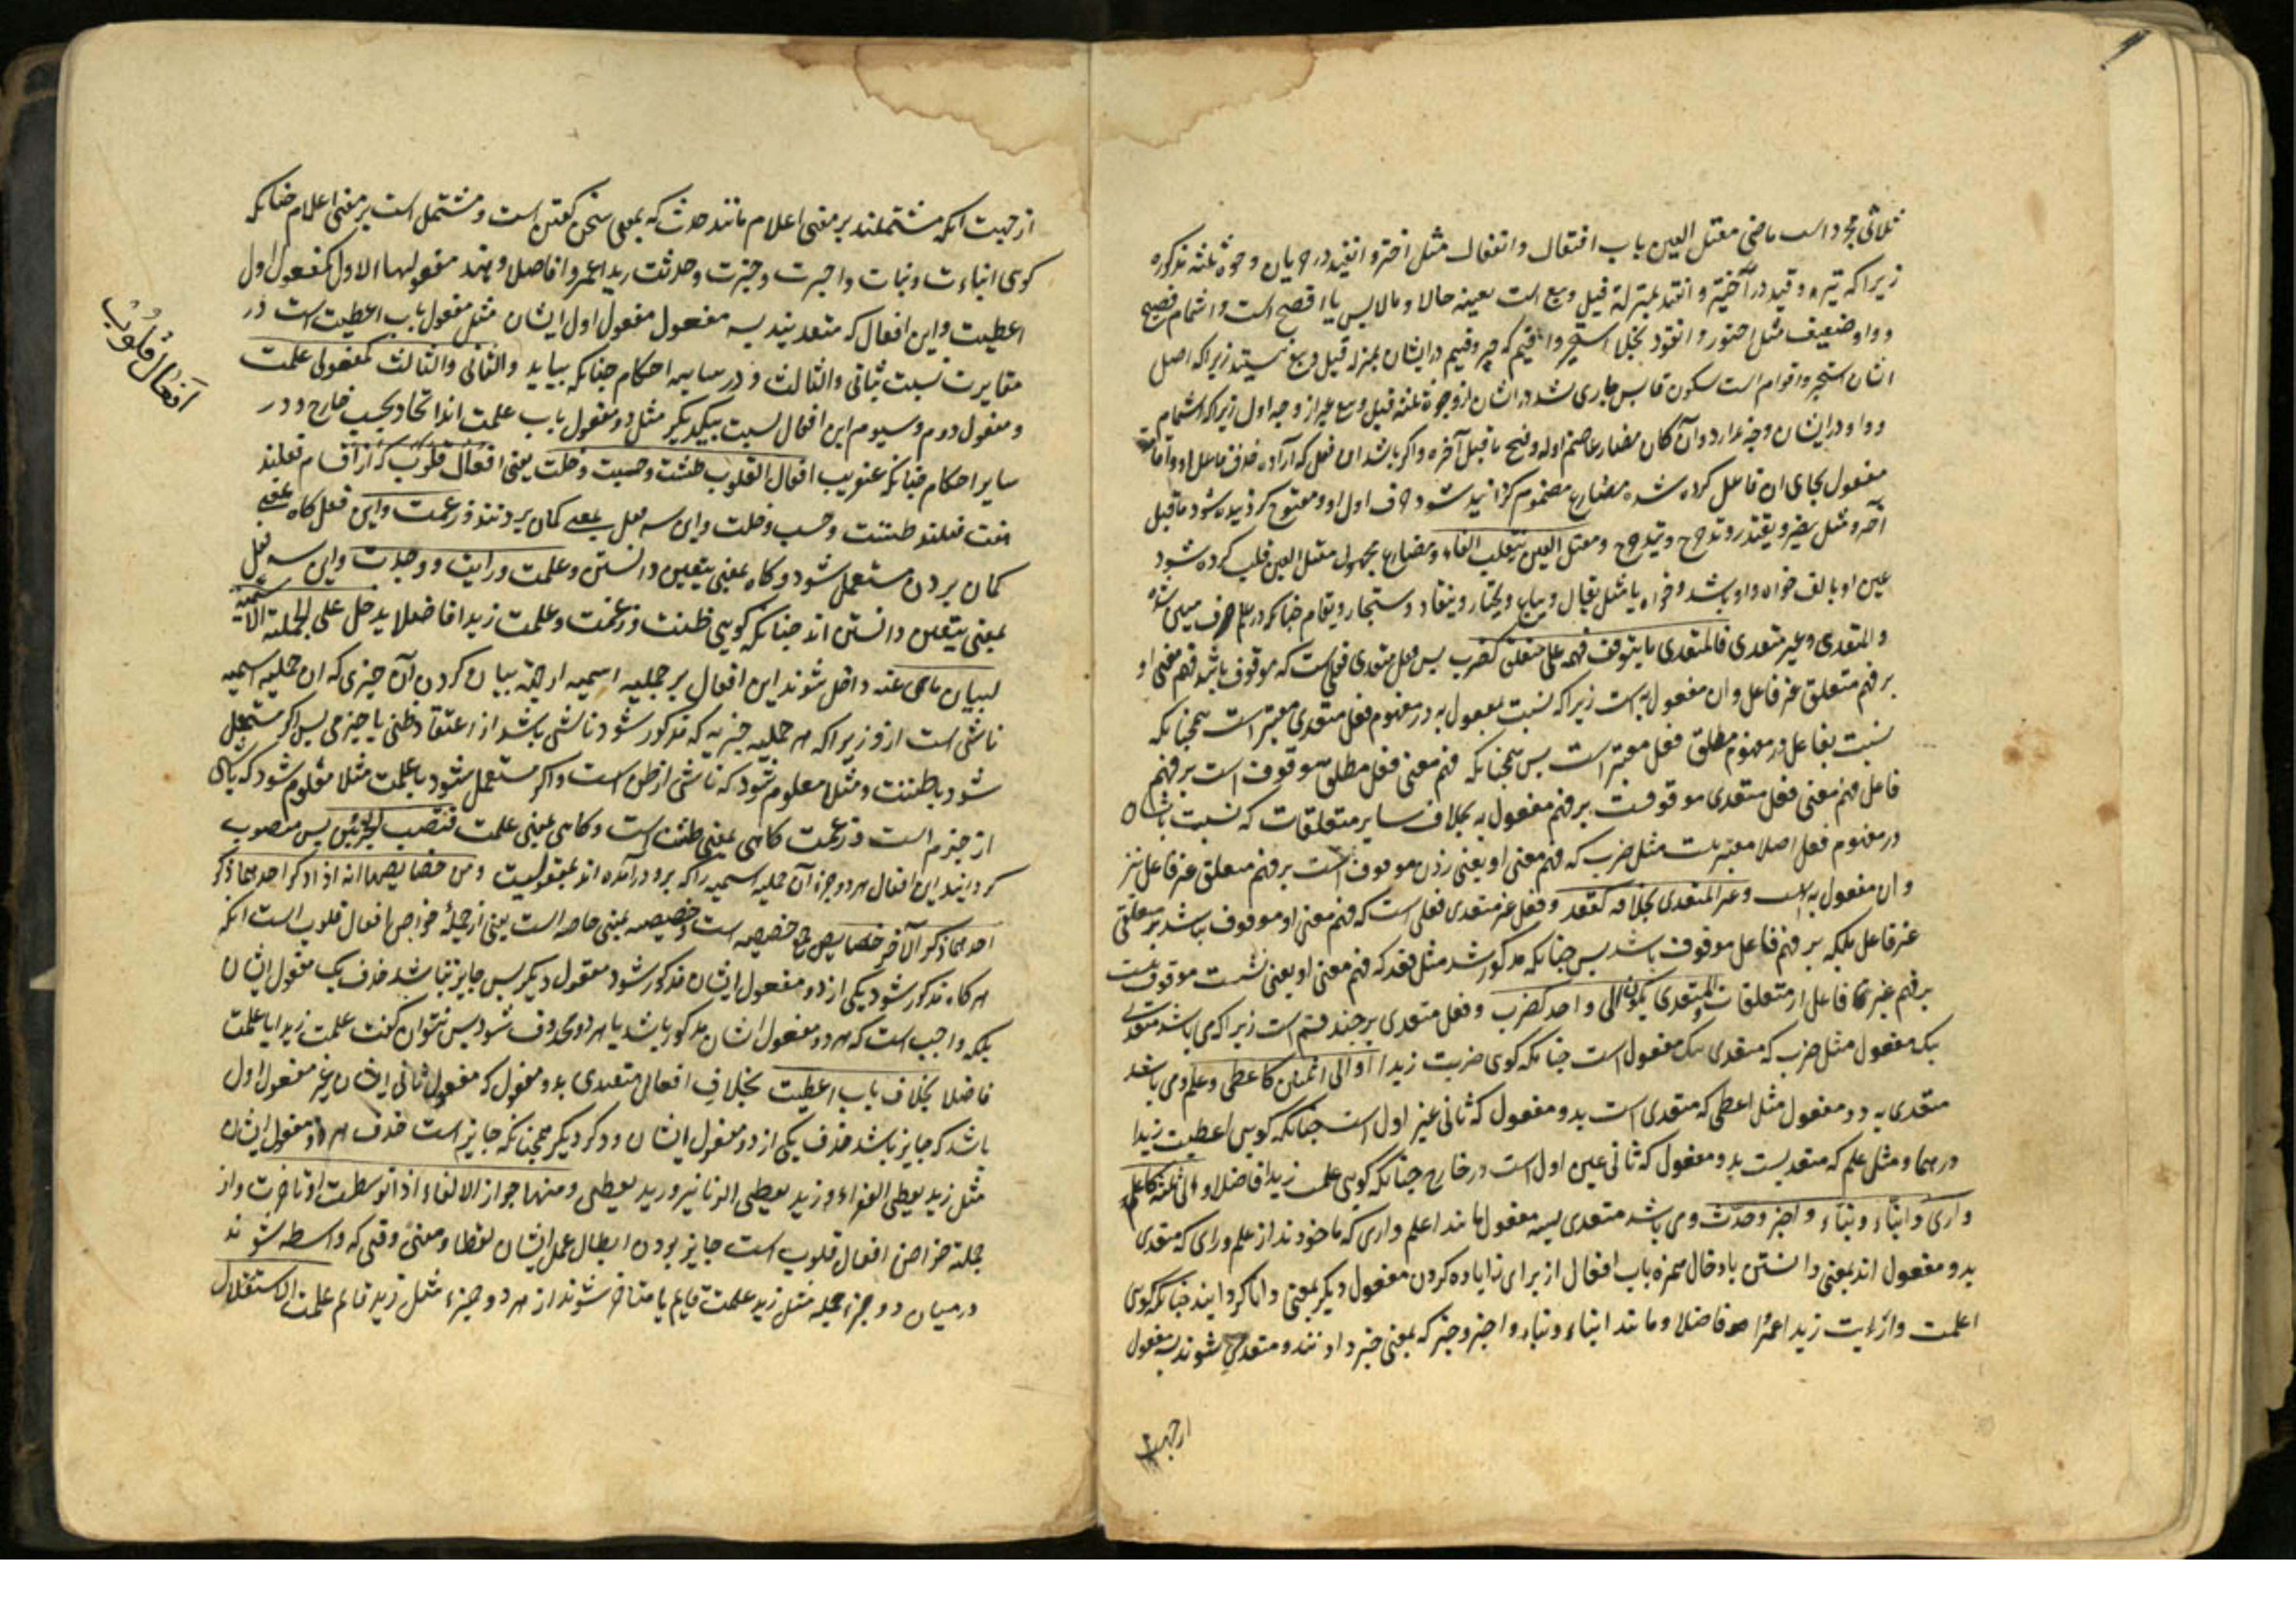 ثلاثی مجرد است ماضی معتل العین باب افتعال و انفعال مثل اختیر و انقید در جریان وجوه ثلثه مذکوره
زیرا که تیر و قید در اختیر و انقید بمنزلة قیل و بیع است بعینه حالا و مالا پس یا افصح است و اشمام فصیح
و واو ضعیف مثل اختور و انقود بخلاف استخیر و اقیم که خیر و قیم در ایشان بمنزله قیل و بیع نیستند زیرا که اصل
ایشان استخیر و اقوم است بسکون ماقبل پس جاری نشد در ایشان از وجوه ثلثه قیل و بیع غیر از وجه اول زیرا که اشمام
و واو در ایشان وجهی ندارد و ان کان مضارعا ضم اوله و فتح ما قبل آخره و اگر باشد ان فعل که اراده حذف فاعل او و اقامت
مفعول بجای ان فاعل کرده شده مضارع مضموم گردانیده شود حرف اول او و مفتوح گردانیده شود ماقبل
آخر او مثل یضرب و یقتدر و تدحرج و یتدحرج و معتل العین ینقلب الفا و مضارع مجهول معتل العین قلب کرده شود
عین او بالف خواه واو باشد و خواه یا مثل یقال و یباع و یختار و ینقاد و یستجار و یقام چنانکه در علم صرف مبین شده
و المتعدی و غیر متعدی فالمتعدی ما یتوقف فهمه علی متعلق کضرب پس فعل متعدی فعلی است که موقوف باشد فهم معنی او
بر فهم متعلق غیر فاعل و ان مفعول به است زیرا که نسبت بمفعول به در مفهوم فعل متعدی معتبر است همچنانکه
نسبت بفاعل در مفهوم مطلق فعل معتبر است پس همچنانکه فهم معنی فعل مطلق موقوف است بر فهم
فاعل فهم معنی فعل متعدی موقوفست بر فهم مفعول به بخلاف سایر متعلقات که نسبت بایشان
در مفهوم فعل اصلا معتبر نیست مثل ضرب که فهم معنی او یعنی زدن موقوف است بر فهم متعلق غیر فاعل نیز
و ان مفعول به است و غیر المتعدی بخلافه کقعد و فعل غیر متعدی فعلی است که فهم معنی او موقوف نباشد بر متعلق
غیر فاعل بلکه بر فهم فاعل موقوف باشد پس چنانکه مذکور شد مثل قعد که فهم معنی او یعنی نشست موقوف نیست
بر فهم غیر فاعل از متعلقات و المتعدی یکون الی واحد کضرب و فعل متعدی بر چند قسم است زیرا که می باشد متعدی
بیک مفعول مثل ضرب که متعدی بیک مفعول است چنانکه گوئی ضربت زیدا او الی اثنین کاعطی و علم و می باشد
متعدی به دو مفعول مثل اعطی که متعدی است بدو مفعول که ثانی غیر اول است چنانکه گویی اعطیت زیدا
درهما و مثل علم که متعدیست بدو مفعول که ثانی عین اول است در خارج چنانکه گویی علمت زیدا فاضلا و الی ثلثة کاعلم
و اری و انباء و نباء و اخبر و حدث و می باشد متعدی بسه مفعول مانند اعلم و اری که ماخوذند از علم و رای که متعدی
بدو مفعول اند بمعنی دانستن بادخال همزه باب افعال از برای زیاده کردن مفعول دیگر بمعنی دانا گردانیدن چنانکه گوئی
اعلمت و ارایت زیدا عمرا فاضلا و مانند انباء و نباء و اخبر و خبر که بمعنی خبر دادنند و متعدی می شوند بسه مفعول
از جهت
از جهت آنکه مشتملند بر معنی اعلام مانند حدث که بمعنی سخن گفتن است و مشتمل است بر معنی اعلام چنانکه
گوئی انباءت و نبات و اخبرت و خبرت و حدثت زیدا عمروا فاضلا و هذه مفعولها الاول کمفعول اول
اعطیت و این افعال که متعدیند به سه مفعول مفعول اول ایشان مثل مفعول باب اعطیت است در
مغایرت نسبت بثانی و الثالث و در سایر احکام چنانکه بیاید و الثانی و الثالث کمفعولی علمت
و مفعول دوم و سیوم این افعال نسبت بیکدیگر مثل دو مفعول باب علمت اند اتحاد بحسب خارج و در
سایر احکام چنانکه عنقریب افعال القلوب ظننت و حسبت و خلت یعنی افعال قلوب که از اقسام فعلند
هفت فعلند ظننت و حسبت و خلت و این سه فعل بمعنی گمان بردنند و زعمت و این فعل گاه بمعنی
گمان بردن مستعمل شود و گاه بمعنی یقین دانستن و علمت و رایت و وجدت و این سه فعل
بمعنی یقین دانستن اند چنانکه گویی ظننت و زعمت و علمت زیدا فاضلا یدخل علی الجملة الاسمیة
لبیان ما هی عنه داخل شوند این افعال بر جملیه اسمیه از جهة بیان کردن آن چیزی که ان جملیه اسمیه
ناشی است ازو زیرا که هر جملیه خبریه که مذکور شود ناشی باشد از اعتقاد ظنی یا جزمی پس اگر مستعمل
شود باظننت و مثلا معلوم شود که ناشی از ظن است و اگر مستعمل شود با علمت مثلا معلوم شود که ناشی
از جزم است و زعمت گاهی بمعنی ظننت است و گاهی بمعنی علمت فتنصب الجزئین پس منصوب
گردانید این افعال هر دو جزء آن جملیه اسمیه را که برو درآمده اند بمفعولیت و من خصایصها انه اذا ذکر احدهما ذکر
احدهما ذکر الآخر خصایص جمع خصیصه است و خصیصه بمعنی خاصه است یعنی از جملۀ خواص افعال قلوب است انکه
هرگاه مذکور شود یکی از دو مفعول ایشان مذکور شود مفعول دیگر پس جایز نباشد حذف یک مفعول ایشان
بلکه واجب است که هر دو مفعول ایشان مذکور باشد یا هر دو محذوف شود پس نتوان گفت علمت زیدا یا علمت
فاضلا بخلاف باب اعطیت بخلاف افعال متعدی بدو مفعول که مفعول ثانی ایشان غیر مفعول اول
باشد که جایز باشد حذف یکی از دو مفعول ایشان و ذکر دیگر همچنانکه جایز است حذف هر دو مفعول ایشان
مثل زید یعطی الفقراء و زید یعطی الدنانیر و زید یعطی و منها جواز الالغاء اذا توسطت او تاخرت و از
جملة خواص افعال قلوب است جایز بودن ابطال عمل ایشان لفظا و معنی وقتی که واسطه شوند
در میان دو جزء جمله مثل زید علمت قایم یا متاخر شوند از هر دو جزء مثل زید قایم علمت الاستقلال
أفعال قلوب